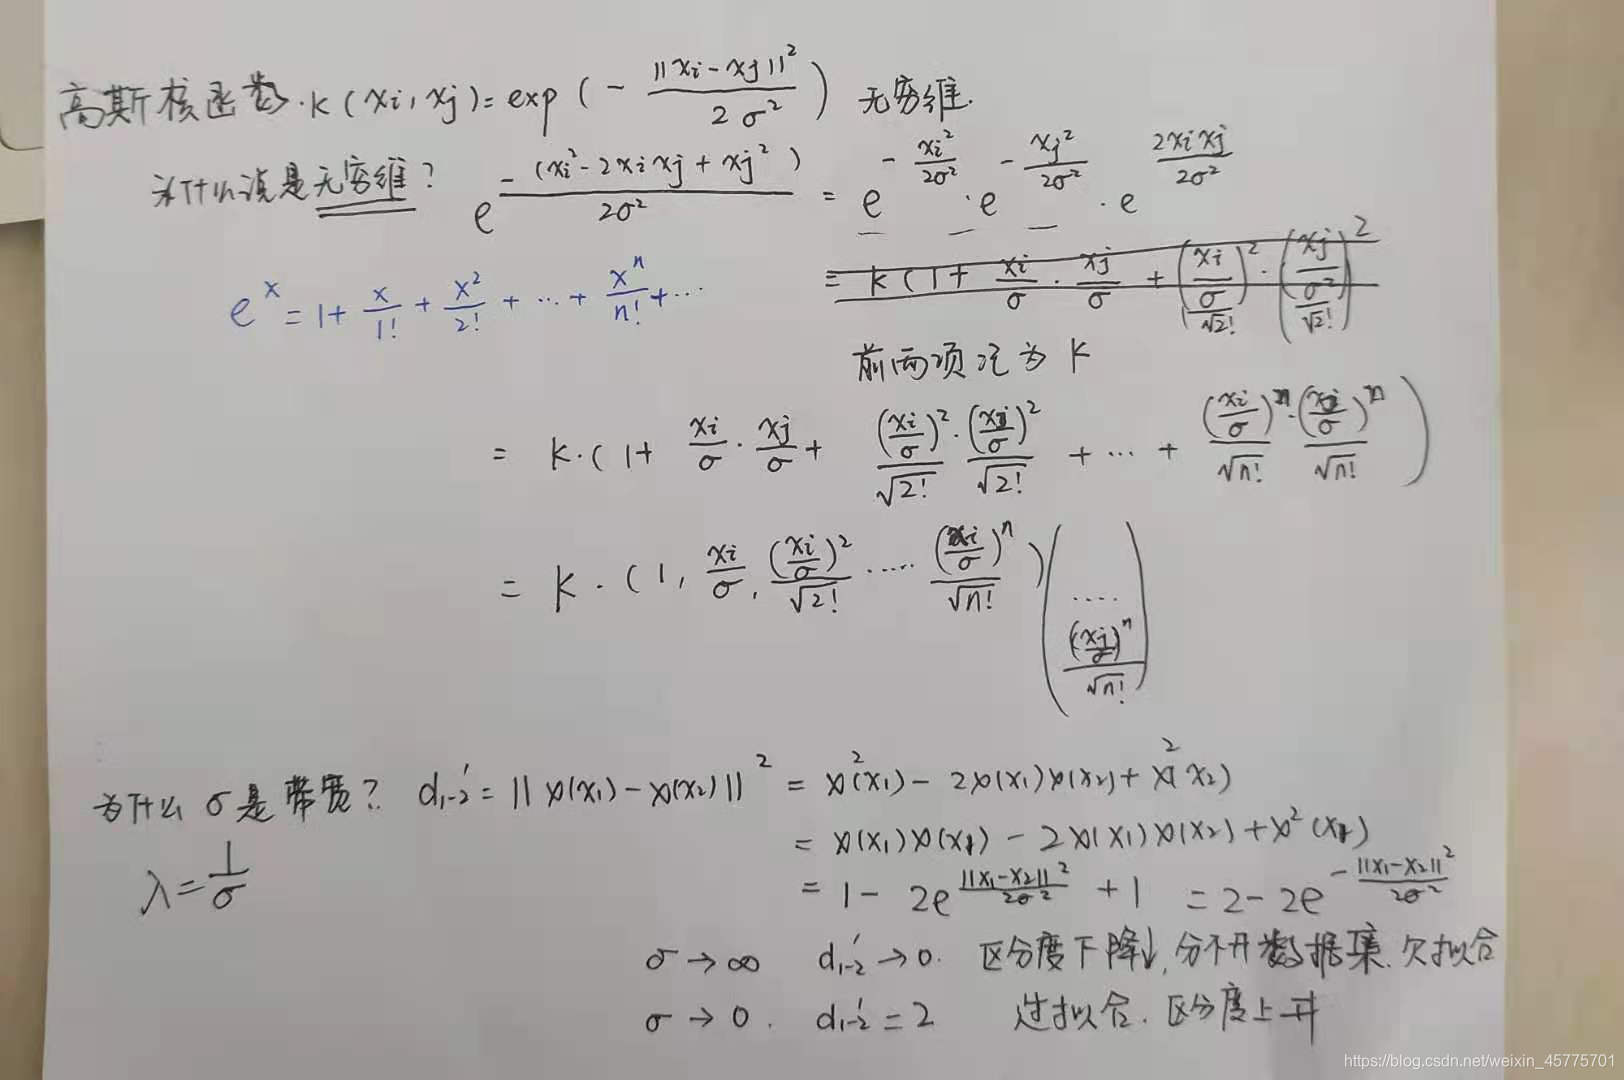 高斯核函数. k(xi, xj) = exp(- ||xi - xj||² / 2σ²) 无穷维.
为什么说是无穷维? e^(-(xi² - 2xixj + xj²) / 2σ²) = e^(-xi²/2σ²) · e^(-xj²/2σ²) · e^(2xixj/2σ²)
e^x = 1 + x/1! + x²/2! + ... + x^n/n! + ...
= k(1 + xi/σ · xj/σ + (xi/σ/√2!)² · (xj/σ²/√2!)²
前两项记为 k
= k·(1 + xi/σ · xj/σ + (xi/σ)²/√2! · (xj/σ)²/√2! + ... + (xi/σ)^n/√n! · (xj/σ)^n/√n!)
= k·(1, xi/σ, (xi/σ)²/√2! ..... (xi/σ)^n/√n!) ( .... (xj/σ)^n/√n! )
为什么 σ 是带宽? d₁₋₂′ = ||φ(x₁) - φ(x₂)||² = φ²(x₁) - 2φ(x₁)φ(x₂) + φ²(x₂)
= φ(x₁)φ(x₁) - 2φ(x₁)φ(x₂) + φ²(x₂)
λ = 1/σ
= 1 - 2e^(||x₁-x₂||²/2σ²) + 1 = 2 - 2e^(-||x₁-x₂||²/2σ²)
σ → ∞ d₁₋₂′ → 0. 区分度下降↓, 分不开数据集. 欠拟合
σ → 0. d₁₋₂′ = 2 过拟合. 区分度上升
https://blog.csdn.net/weixin_45775701